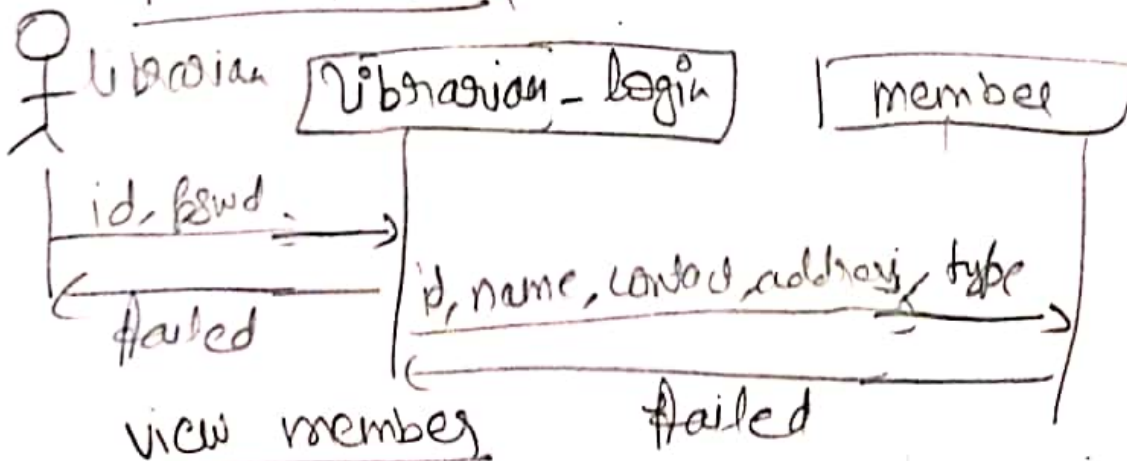 librarian
librarian_login
member
id, pswd.
failed
id, name, contact, address, type
failed
view member